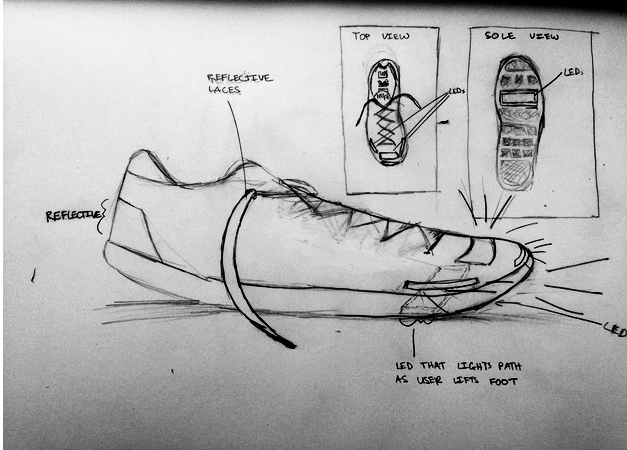 TOP VIEW
SOLE VIEW
REFLECTIVE
LACES
LEDs
LEDs
REFLECTIVE
LED
LED THAT LIGHTS PATH
AS USER LIFTS FOOT